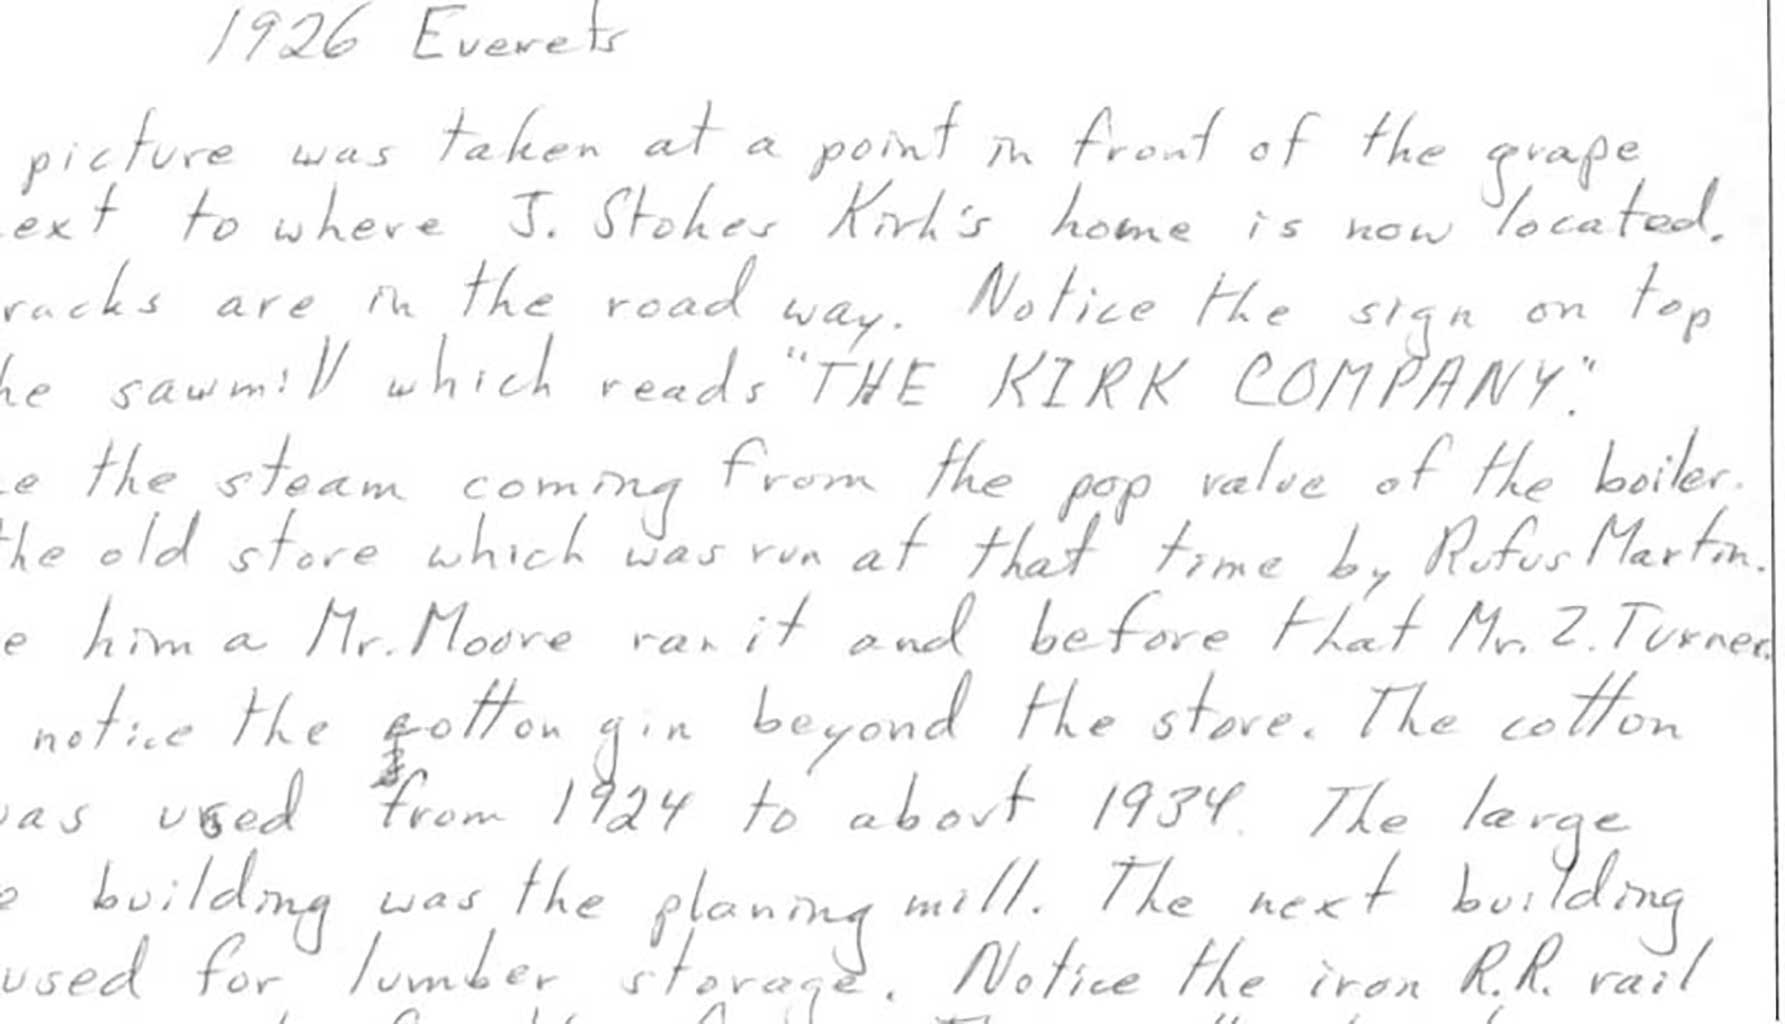 1926 Everets
picture was taken at a point in front of the grape
ext to where J. Stokes Kirk's home is now located.
racks are in the road way. Notice the sign on top
he sawmill which reads "THE KIRK COMPANY."
e the steam coming from the pop valve of the boiler.
the old store which was run at that time by Rufus Martin.
e him a Mr. Moore ran it and before that Mr. Z. Turner.
notice the cotton gin beyond the store. The cotton
was used from 1924 to about 1934. The large
building was the planing mill. The next building
used for lumber storage. Notice the iron R.R. rail